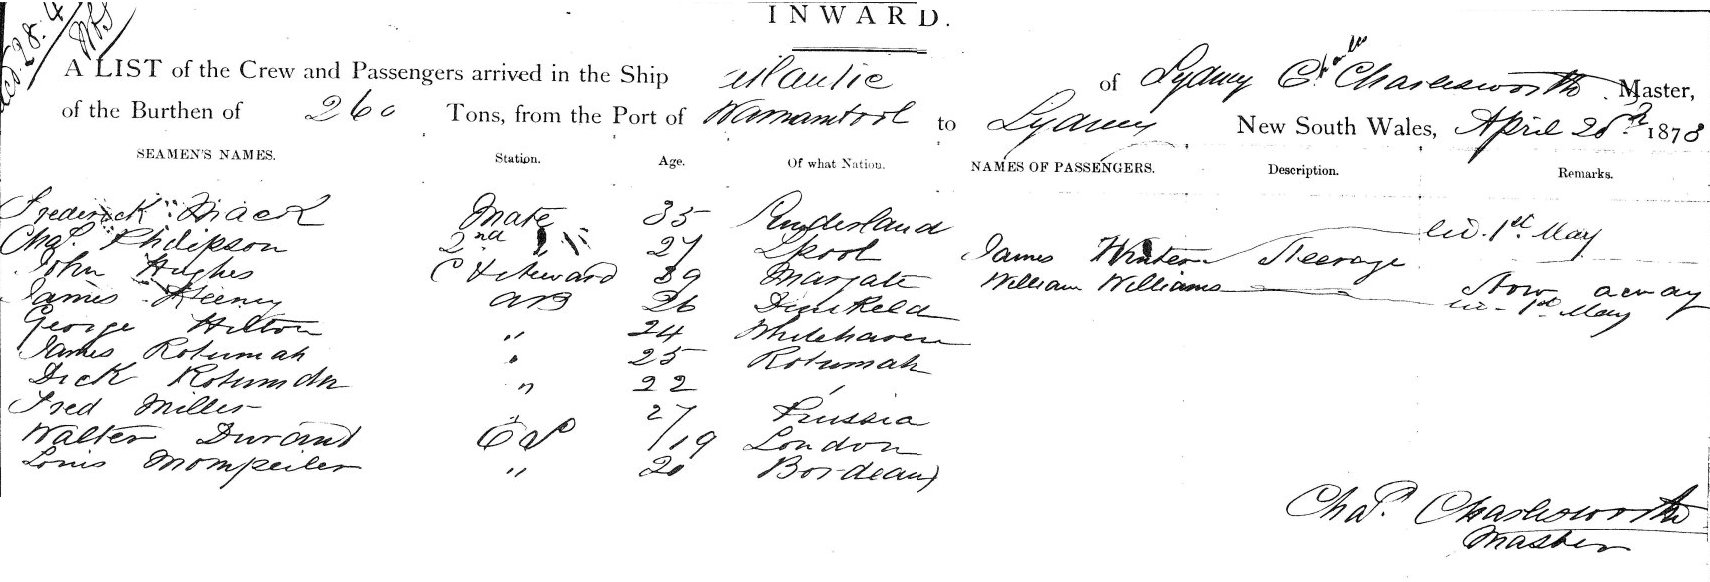 INWARD.
A LIST of the Crew and Passengers arrived in the Ship Atlantic of Sydney Chas Charlesworth Master,
of the Burthen of 260 Tons, from the Port of to Sydney New South Wales, April 28th 1878
SEAMEN'S NAMES. Station. Age. Of what Nation. NAMES OF PASSENGERS. Description. Remarks.
Frederick Mack Mate 35 Sunderland
Chas. Philipson 2nd " 27 Lpool James Winter Steerage 1st May
John Hughes C & Steward 39 Margate William Williams Stow away
James Heeney AB 26 Dunkeld 1st May
George Hilton " 24 Whitehaven
James Rotumah " 25 Rotumah
Dick Rotumah " 22 "
Fred Miller " 27 Prussia
Walter Durand OS 19 London
Louis Mompeiler " 20 Bordeaux
Chas. Charlesworth
Master